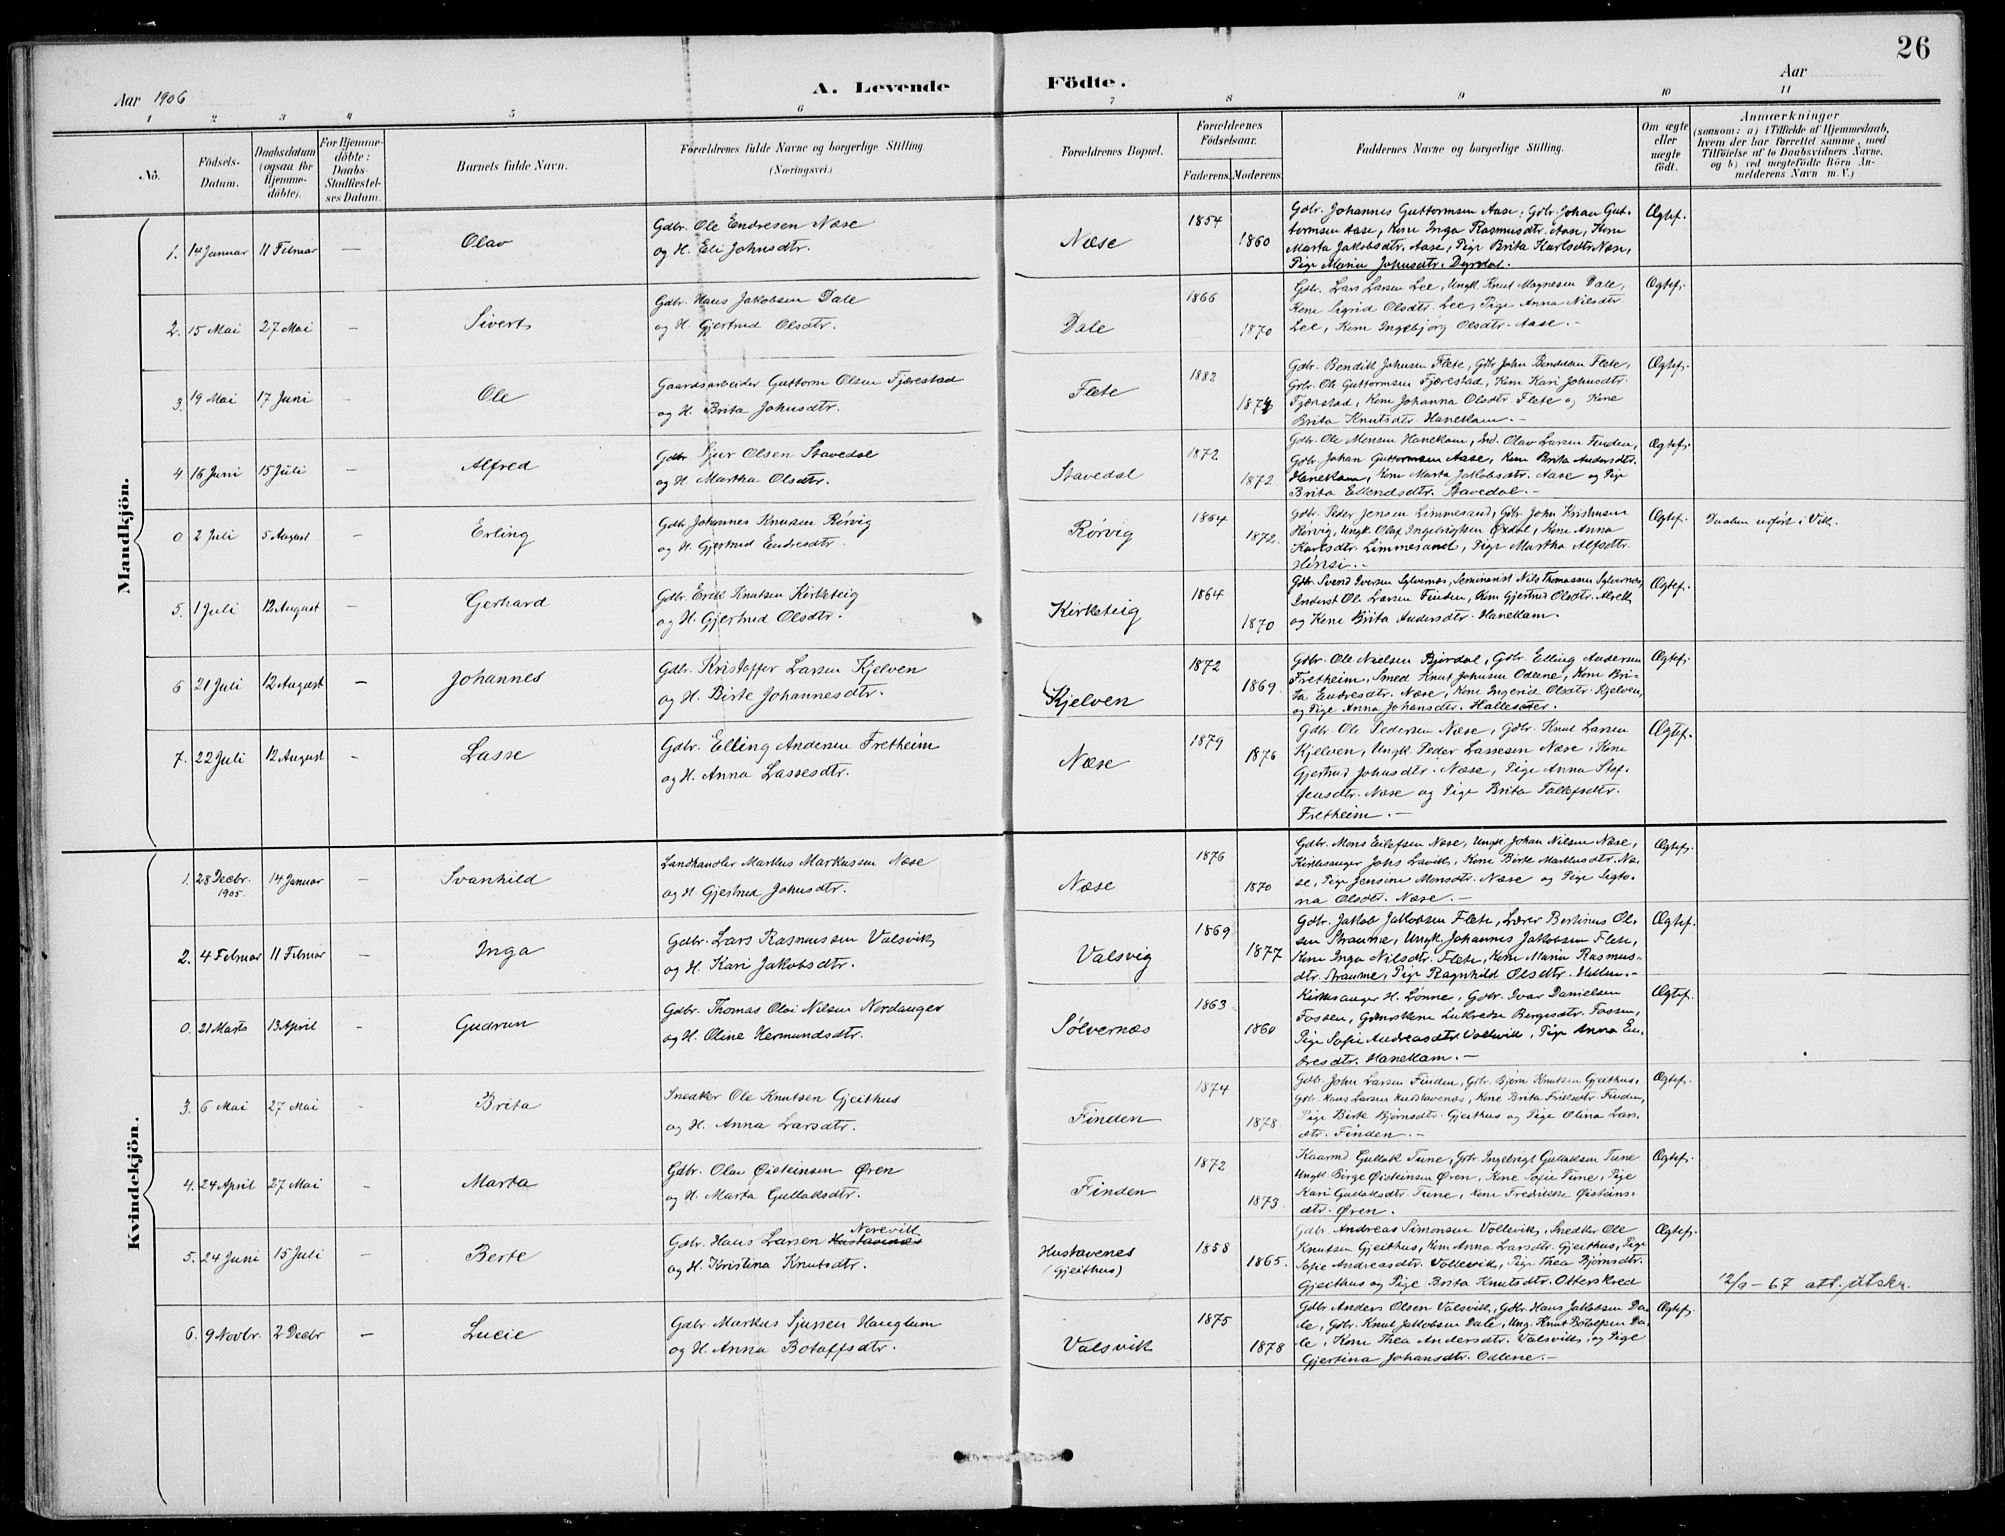 26
Aar 1906
A. Levende Födte.
Aar
1 2 3 4 5 6 7 8 9 10 11
No.
Födsels-
Datum.
Daabsdatum
(ogsaa för
Hjemme-
döbte).
For Hjemme-
döbte:
Daabs-
Stadfæstel-
ses Datum.
Barnets fulde Navn.
Forældrenes fulde Navne og borgerlige Stilling.
(Næringsvei.)
Forældrenes Bopæl.
Forældrenes
Födselsaar.
Faderens Moderens
Faddernes Navne og borgerlige Stilling.
Om ægte
eller
uægte
födt.
Anmærkninger
(saasom: a) i Tilfælde af Hjemmedaab,
hvem der har forrettet samme, med
Tilföielse af to Daabsvidners Navne,
og b) ved uægtefödte Börn An-
melderens Navn m. V.)
Mandkjön.
1. 14 Januar 11 Februar — Olav
Gdbr. Ole Endresen Næse
og H. Eli Johnsdtr.
Næse 1854 1860
Gdbr. Johannes Guttormsen Aase, Gdbr. Johan Gut-
tormsen Aase, Kone Inga Rasmusdtr. Aase, Kone
Marta Jakobsdtr. Aase, Pige Brita Karlsdtr. Næse,
Pige Maria Johnsdtr. Dyrdal.
Ægtef.
2. 15 Mai 27 Mai — Sivert
Gdbr. Hans Jakobsen Dale
og H. Gjertrud Olsdtr.
Dale 1866 1870
Gdbr. Lars Larsen Lee, Ungk. Knut Magnesen Dale,
Kone Sigrid Olsdtr. Lee, Pige Anna Nilsdtr
Lee, Kone Ingebjorg Olsdtr. Aase. —
Ægtef.
3. 19 Mai 17 Juni — Ole
Gaardsarbeider Guttorm Olsen Fjærestad
og H. Brita Johnsdtr.
Flete 1882 1874
Gdbr. Bendik Johnsen Flete, Gdbr John Bendiksen Flete,
Gdbr. Ole Guttormsen Fjærestad, Kone Kari Johnsdtr.
Fjærestad, Kone Johanna Olsdtr Flete og Kone
Brita Knutsdtr Hanekam. —
Ægtef.
4. 16 Juni 15 Juli — Alfred
Gdbr. Sjur Olsen Stavedal
og H. Martha Olsdtr.
Stavedal 1872 1872
Gdbr. Ole Monsen Hanekam, Ind. Olav Larsen Finden,
Gdbr. Johan Guttormsen Aase, Kone Brita Andersdtr.
Hanekam, Kone Marta Jakobsdtr. Aase og Pige
Brita Ellendsdtr. Stavedal. —
Ægtef.
0. 2 Juli 5 August — Erling
Gdbr. Johannes Knutsen Rørvig
og H. Gjertrud Endresdtr.
Rørvig 1864 1872.
Gdbr. Peder Jensen Limmesand, Gdbr. John
Rørvig, Ungk. Olaf Ingebrigtsen Oxdal, Kone Anna
Karlsdtr. Limmesand, Pige Martha Alfsdtr.
Hønsi. —
Ægtef. Daaben udført i Vik.
5. 1 Juli 12 August — Gerhard
Gdbr. Erik Knutsen Kirketeig
og H. Gjertrud Olsdtr.
Kirketeig 1864 1870
Gdbr. Svend Iversen Sylvernæs, Seminarist Nils Thomassen Sylvernæs,
Inderst Ole Larsen Finden, Kone Gjertrud Olsdtr.
og Kone Brita Andersdtr. Hanekam.
Ægtef.
6 21 Juli 12 August — Johannes
Gdbr. Kristoffer Larsen Kjelven
og H. Birte Johannesdtr.
Kjelven 1872 1869.
Gdbr. Ole Nielsen Bjørdal, Gdbr. Elling Andersen
Fretheim, Smed Knut Johnsen Odlene, Kone Bri-
ta Endresdtr. Næse, Kone Ingerid Olsdtr. Kjelven,
og Pige Anna Johansdtr. Hallesæter.
Ægtef.
7. 22 Juli 12 August — Lasse
Gdbr. Elling Andersen Fretheim
og H. Anna Lassesdtr.
Næse 1879 1876
Gdbr. Ole Pedersen Næse, Gdbr. Knut Larsen
Kjelven, Ungk. Peder Lassesen Næse, Kone
Gjertrud Johnsdtr. Næse, Pige Anna Stef-
fensdtr. Næse og Pige Brita Tollefsdtr.
Fretheim. —
Ægtef.
Kvindekjön.
1. 28 Decbr. 1905. 14 Januar — Svanhild
Landhandler Markus Markussen Næse
og H. Gjertrud Johnsdtr.
Næse 1876 1870
Gdbr. Mons Eilefsen Næse, Ungk. Johan Nilsen Næse,
Kirkesanger Johs Lavik, Kone Birte Markusdtr. Næ-
se, Pige Jensine Monsdtr. Næse og Pige Segto-
na Olsdtr. Næse. —
Ægtef.
2. 4 Februar 11 Februar — Inga
Gdbr. Lars Rasmussen Valsvik
og H. Kari Jakobsdtr.
Valsvig 1869 1877
Gdbr. Jakob Jakobsen Flete, Lærer Bertinus Ol-
sen Straume, Ungk. Johannes Jakobsen Flete,
Kone Inga Nilsdtr. Flete, Kone Maria Rasmus-
dtr. Straume, Pige Ragnhild Olsdtr. Hellen. —
Ægtef.
0. 21 Marts 13 April — Gudrun
Gdbr. Thomas Olai Nilsen Nordanger
og H. Oline Hermundsdtr.
Sølvernæs 1863 1860
Kirkesanger H. Lønne, Gdbr. Ivar Danielsen
Fossen, Gdmskone Lukredse Bergesdtr. Fossen,
Pige Sofie Andreasdtr. Vollevik, Pige Anna En-
dresdtr. Hanekam. —
Ægtef.
3. 6 Mai 27 Mai - Brita
Snedker Ole Knutsen Gjeithus
og H. Anna Larsdtr.
Finden 1874 1878
Gdbr. John Larsen Finden, Gdbr. Bjørn Knutsen Gjeithus,
Gdbr. Hans Larsen Hustavenæs, Kone Brita Eriksdtr. Finden,
Pige Birte Bjørnsdtr. Gjeithus og Pige Olina Lars-
dtr. Finden. —
Ægtef.
4. 24 April 27 Mai - Marta
Gdbr. Olav Øisteinsen Øren
og H. Marta Gullaksdtr.
Finden 1872 1873
Kaarmd Gullak Tune, Gdbr Ingebrigt Gullaksen Tune
Ungk Birge Øisteinsen Øren, Kone Sofie Tune, Pige
Kari Gullaksdtr. Tune, Kone Fredrikke Øisteins-
dtr. Øren.
Ægtef.
5. 24 Juni 15 Juli - Berte
Gdbr. Hans Larsen Hustavenæs Norevik
og H. Kristina Knutsdtr.
Hustavenes
(Gjeithus)
1858 1865.
Gdbr. Andreas Simonsen Vollevik, Snedker Ole
Knutsen Gjeithus, Kone Anna Larsdtr. Gjeithus, Pige
Sofie Andreasdtr. Vollevik, Pige Thea Bjørnsdtr.
Gjeithus og Pige Brita Knutsdtr. Otterskred
Ægtef. 12/9 - 67 att. utskr.
6. 9 Novbr. 2 Decbr — Lucie
Gdbr. Markus Sjursen Hauglum
og H. Anna Botolfsdtr.
Valsvik 1875 1878
Gdbr Anders Olsen Valsvik, Gdbr. Hans Jakobsen Da-
le, Gdbr. Knut Jakobsen Dale, Ung. Knut Botolfsen Da-
le, Kone Thea Andersdtr. Valsvik, og Pige
Gjertina Johansdtr. Odlene. —
Ægtef.